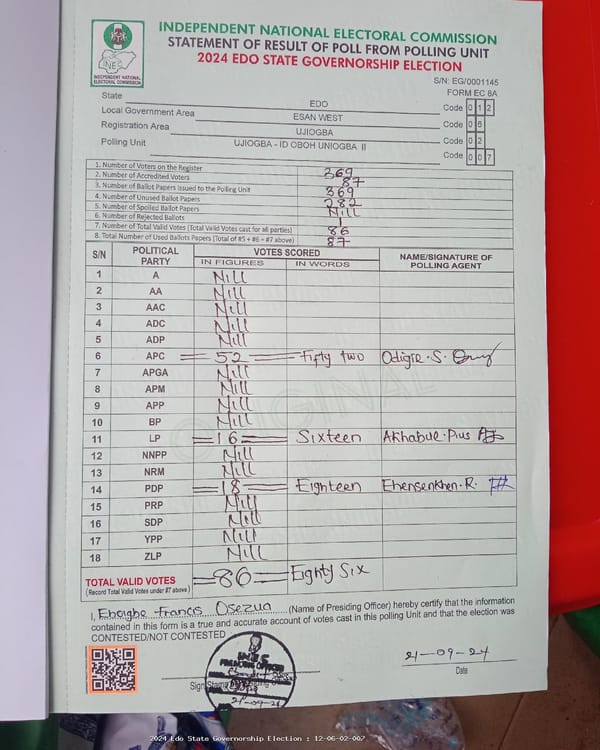 INDEPENDENT NATIONAL ELECTORAL COMMISSION
STATEMENT OF RESULT OF POLL FROM POLLING UNIT
2024 EDO STATE GOVERNORSHIP ELECTION
INEC
INDEPENDENT NATIONAL
ELECTORAL COMMISSION
S/N: EG/0001145
FORM EC 8A
State EDO Code 0 1 2
Local Government Area ESAN WEST Code 0 6
Registration Area UJIOGBA Code 0 2
Polling Unit UJIOGBA - ID OBOH UNIOGBA II Code 0 0 7
1. Number of Voters on the Register 369
2. Number of Accredited Voters 87
3. Number of Ballot Papers Issued to the Polling Unit 369
4. Number of Unused Ballot Papers 282
5. Number of Spoiled Ballot Papers Nill
6. Number of Rejected Ballots 1
7. Number of Total Valid Votes (Total Valid Votes cast for all parties) 86
8. Total Number of Used Ballots Papers (Total of #5 + #6 + #7 above) 87
S/N POLITICAL PARTY VOTES SCORED NAME/SIGNATURE OF POLLING AGENT
IN FIGURES IN WORDS
1 A Nill
2 AA Nill
3 AAC Nill
4 ADC Nill
5 ADP Nill
6 APC =52= Fifty two Odigie.S.
7 APGA Nill
8 APM Nill
9 APP Nill
10 BP Nill
11 LP =16= Sixteen Akhabue.Pius
12 NNPP Nill
13 NRM Nill
14 PDP =18= Eighteen Ehensenkhen.R.
15 PRP Nill
16 SDP Nill
17 YPP Nill
18 ZLP Nill
ORIGINAL
TOTAL VALID VOTES =86= Eighty Six
(Record Total Valid Votes under #7 above)
I, Ebeigbe Francis Osezua (Name of Presiding Officer) hereby certify that the information
contained in this form is a true and accurate account of votes cast in this polling Unit and that the election was
CONTESTED/NOT CONTESTED
INEC
PRESIDING OFFICER
21-09-24
Sign
Date
21-09-24
2024 Edo State Governorship Election : 12-06-02-007